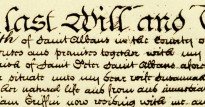 last Will and
of Saint Albans in the County of
and premises together with my
of Saint Peter Saint Albans afore
situate unto my dear wife Susannah
her natural life and from and immediat
Griffin now residing with me